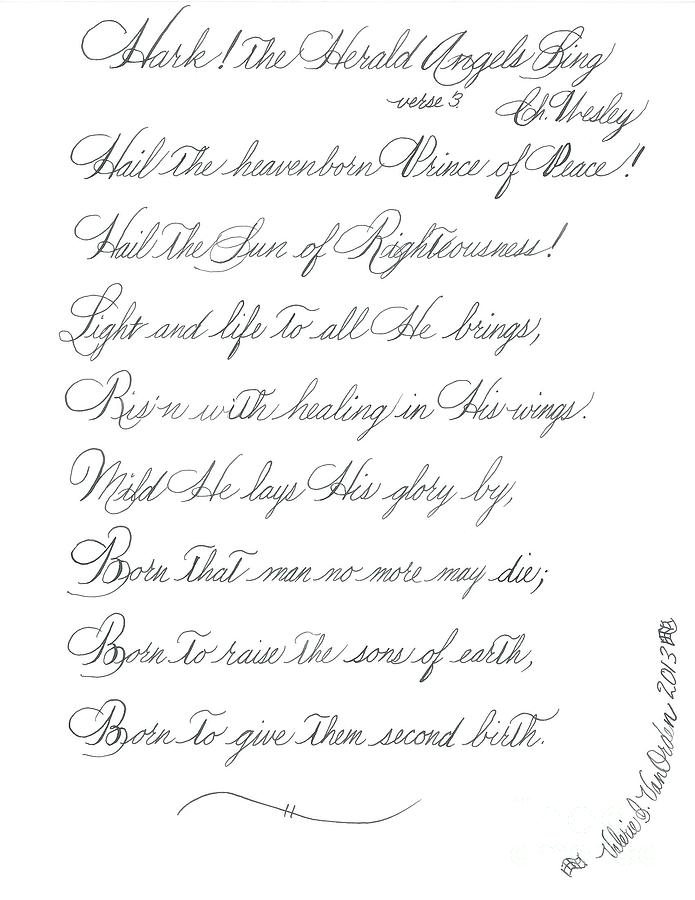 Hark! The Herald Angels Sing
verse 3.
Ch. Wesley
Hail the heavenborn Prince of Peace!
Hail the Sun of Righteousness!
Light and life to all He brings,
Ris'n with healing in His wings.
Mild He lays His glory by,
Born that man no more may die;
Born to raise the sons of earth,
Born to give them second birth.
Valerie S. VanOrden 2013